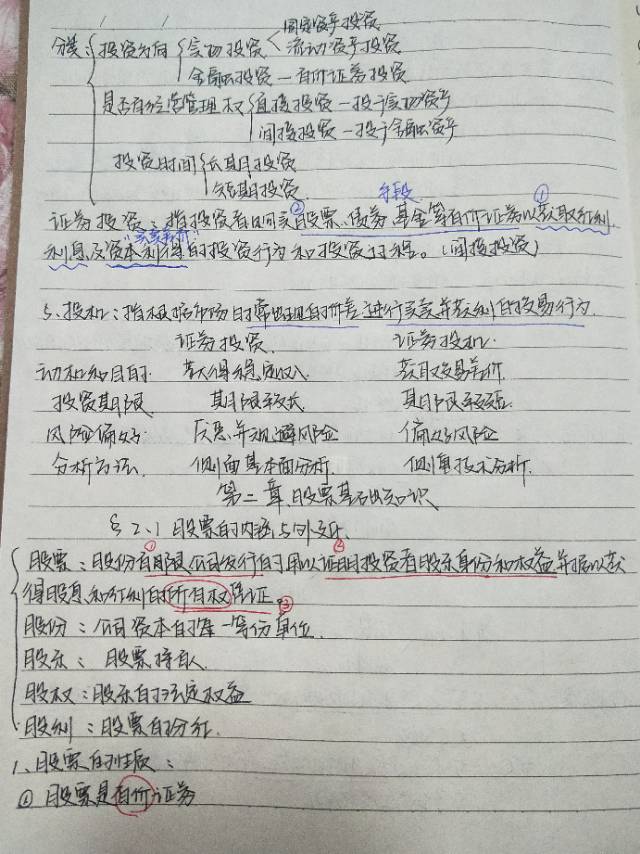 固定资产投资
分类：投资方向 实物投资 流动资产投资
金融投资—有价证券投资
是否有经营管理权 直接投资—投于实物资产
间接投资—投于金融资产
投资时间 长期投资
短期投资
手段 ①
证券投资：指投资者购买②股票、债券、基金等有价证券以获取红利、
买卖差价
利息及资本利得的投资行为和投资过程。（间接投资）
5、投机：指根据市场的出现的价差进行买卖并获利的交易行为.
证券投资. 证券投机.
动机和目的. 获得稳定收入 获取交易差价.
投资期限 期限较长 期限较短.
风险偏好. 厌恶并规避风险 偏好风险
分析方法. 侧重基本面分析. 侧重技术分析.
第二章 股票基础知识
§2.1 股票的内涵与外延.
① ②
股票：股份有限公司发行的用以证明投资者股东身份和权益并据以获
得股息和红利的所有权凭证。③
股份：公司资本的单一等份单位.
股东：股票持有人
股权：股东的法定权益
股利：股票的分红.
1、股票的性质：
① 股票是有价证券